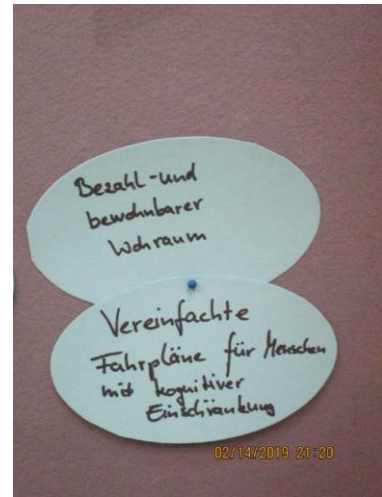 Bezahl-und
bewohnbarer
Wohraum
Vereinfachte
Fahrpläne für Menschen
mit kognitiver
Einschränkung
02/14/2019 21:20